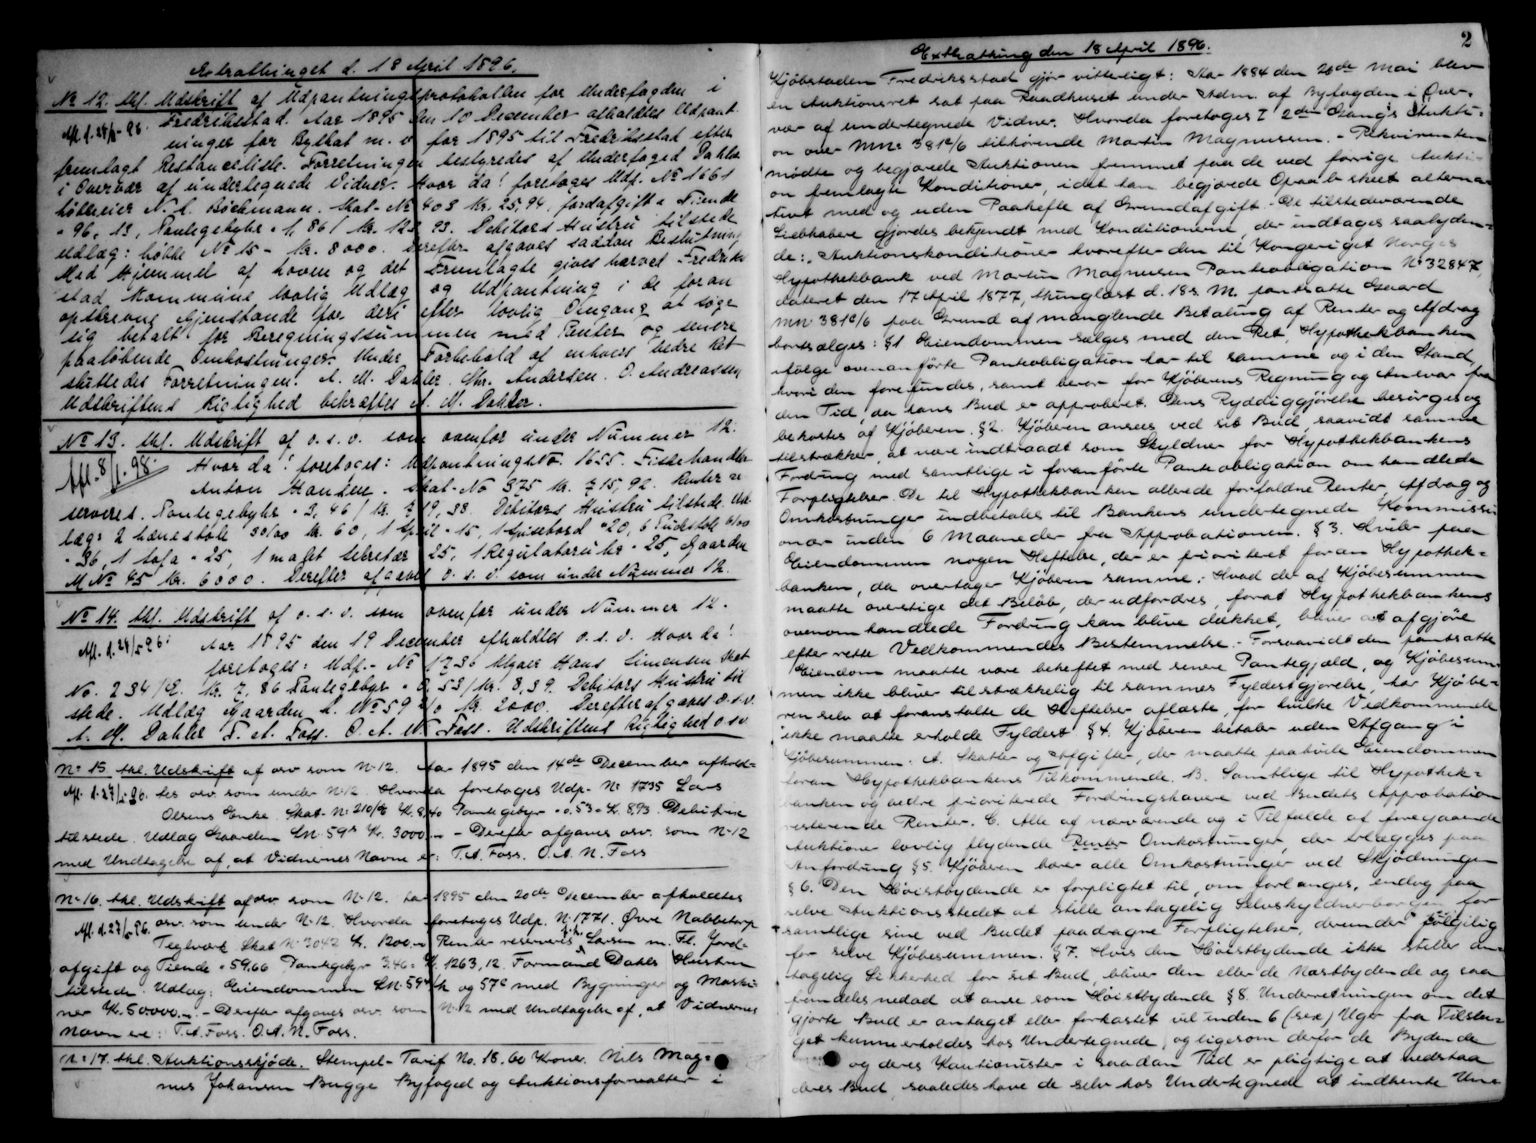 Extrathinget d. 18 April 1896.
No 12. thl. Udskrift af Udpantningsprotokollen for Underfogden i
Afl. d. 27/5-96. Fredriksstad. Aar 1895 den 10 December afholdtes Udpant-
ninger for Byskat m. v. for 1895 til Fredriksstad efter
fremlagt Restanceliste. Forretningen bestyredes af Underfoged Dahler
i Overvær af undertegnede Vidner. Hvor da! foretages Udp. No 1661
høkereier N. C. Böckmann. Skat. No 408 Kr. 25,94, Jordafgift & Tiende
" 96,13, Pantegebyhr " 1,86 / Kr. 123,93. Debitors Hustru tilstede
Udlæg: Løkke No 15 - Kr. 8000. Derefter afgaves saadan Beslutning
Med Hjemmel af Loven og det Fremlagte gives herved Fredriks-
stad Kommune lovlig Udlæg og Udpantning i de foran
opskrevne Gjenstande for deri efter lovlig Omgang at søge
sig betalt for Beregningssummen med Renter og senere
paaløbende Omkostninger. Under Forbehold af enhvers bedre Ret
sluttedes Forretningen. A. M. Dahler. Chr. Andersen. O. Andreassen
Udskriftens Rigtighed bekræftes A. M. Dahler.
No 13. thl. Udskrift af o. s. v. som ovenfor under Nummer 12.
Afl. 8/1-98 Hvor da! foretoges: Udpantning No. 1655. Fiskehandler
Anton Hansen. Skat-No 325 Kr. 715,92. Renter re-
serveres. Pantegebyhr " 3,46 / Kr. 719,38. Debitors Hustru tilstede. Ud-
læg: 2 Lænestole 30/00 Kr. 60, 1 Speil " 15, 1 Spisebord " 20, 6 Rørstole 6/00
" 36, 1 Sofa " 25, 1 mah. Sekretær " 25, 1 Regulatoruhr " 25, Gaarden
M No 95 Kr. 6000. Derefter afgaves o. s. v. som under Nummer 12.
No 14. thl. Udskrift af o. s. v. som ovenfor under Nummer 12.
Afl. d. 27/5-96. Aar 1895 den 19 December afholdtes o. s. v. Hvor da!
foretages: Udp.- No 1736 Hans Simensen Skat
No. 234/ Kr. 7,86 Pantegebyr " 0,53 / Kr. 8,39. Debitors Hustru til
stede. Udlæg Gaarden L. No 59 Kr. 2000. Derefter afgaves o. s. v.
A. M. Dahler T. A. Foss. O. A. N. Foss. Udskriftens Rigtighed o. s. v.
No 15 thl. Udskrift af osv som No 12. Aar 1895 den 14de December afhold-
Afl. d. 27/5-96. tes osv. som under No 12. Hvorda foretoges Udp. No 1735 Lars
Olsens Enke. Skat. No 210/ Kr. 8,40 Pantegebyr " 0.53 = Kr. 8.93. Debitrice
tilstede. Udlæg Gaarden LN 59 Kr. 3000.- - Derefter afgaves osv. som No 12
med Undtagelse af at Vidnernes Navne er: T. A. Foss. O. A. N. Foss
No 16. thl. Udskrift af osv som No 12. Aar 1895 den 20de December afholdtes
Afl. d. 27/5-96. osv. som under No 12. Hvorda foretoges Udp. No 1771. Øvre Nabbetorp
Teglværk Skat No 3042 Kr. 1200.- Renter reserveres Larsen m. Fl. Jord-
afgift og Tiende " 59.66 Pantegebyr 3.46 = Kr. 1263,12. Formand Dahls Hustru
tilstede. Udlæg: Eiendommen LN 59 og 57c med Bygninger og Maski-
ner Kr. 50000.- - Derefter afgaves osv. som No 12 med Undtagelse af, at Vidnernes
Navne er: T. A. Foss. O. A. N. Foss.
No 17. thl. Auktionsskjøde. Stempel-Tarif No. 18. 60 Kroner. Nils Mag-
nus Johansen Bugge Byfoged og Auktionsforvalter i
2
Extratthing den 18 April 1896.
Kjøbstaden Fredriksstad gjør vitterligt: Aar 1884 den 20de Mai blev
en Auktionsret sat paa Raadhuset under Adm. af Byfogden i Over-
vær af undertegnede Vidner. Hvorda foretoges 2den Gangs Aukti-
on over MNr 381c/6 tilhørende Martin Magnussen. - Rekvirenten
mødte og begjærede Auktionen fremmet paa de ved forrige Aukti-
on fremlagte Konditioner, idet han begjærede Opraab skeet alterna-
tivt med og uden Paahefte af Grundafgift. De tilstedeværende
Liebhabere gjordes bekjendt med Konditionerne, der indtages saalyden-
de: Auktionskonditioner hvorefter den til Kongeriget Norges
Hypothekbank ved Martin Magnussen Panteobligation No 32847,
dateret den 17 April 1877, thinglæst d. 18 s. M. pantsatte Gaard
MNr 381c/6 paa Grund af manglende Betaling af Renter og Afdrag
bortsælges: §1 Eiendommen sælges med den Ret, Hypothekbanken
ifølge ovenanførte Panteobligation har til samme og i den Stand
hvori den forefindes, samt berør for Kjøberens Regning og Ansvar fra
den Tid, da hans Bud er approberet. Dens Ryddiggjørelse besørges og
bekostes af Kjøberen. §2. Kjøberen ansees ved sit Bud, saavidt samme
tilstrækker, at være indtraadt som Skyldner for Hypothekbankens
Fordring med samtlige i foranførte Panteobligation omhandlede
Forpligtelser. De til Hypothekbanken allerede forfaldne Renter, Afdrag og
Omkostninger indbetales til Bankens undertegnede Kommissi-
onær inden 6 Maaneder fra Approbationen. §3. Hviler paa
Eiendommen nogen Heftelse, der er prioriteret foran Hypothek-
banken, da overtager Kjøberen samme; Hvad der af Kjøbesummen
maatte overstige det Beløb, der udfordres, forat Hypothekbankens
ovenomhandlede Fordring kan blive dækket, bliver at afgjøre
efter rette Vedkommendes Bestemmelse. - Forsaavidt den pantsatte
Eiendom maatte være beheftet med senere Pantegjæld, og Kjøbesum-
men ikke bliver tilstrækkelig til sammes Fyldestgjørelse, har Kjøbe-
ren selv at foranstalte de Heftelser aflæste, for hvilke Vedkommende
ikke maatte erholde Fyldest. §4. Kjøberen betaler uden Afgang i
Kjøbesummen: A. Skatter og Afgifter, der maatte paahvile Eiendommen
foran Hypothekbankens Tilkommende. B. Samtlige til Hypothek-
banken og ældre prioriterede Fordringshavere ved Budets Approbation
resterende Renter. C. Alle af nærværende og i Tilfælde af foregaaende
Auktioner lovlig flydende Omkostninger, der erlægges paa
Anfordring §5. Kjøberen bærer alle Omkostninger ved Skjødningen
§6. Den Høistbydende er forpligtet til, om forlanges, endog paa
selve Auktionsstedet at stille antagelig Selvskyldnerborgen for
samtlige sine ved Budet paadragne Forpligtelser, derunder følgelig
for selve Kjøbesummen. §7. Hvis den Høistbydende ikke stiller an-
tagelig Sikkerhed for sit Bud, bliver den eller de Næstbydende og saa
fremdeles nedad at anse som Høistbydende §8. Underretningen om det
gjorte Bud er antaget eller forkastet vil inden 6 (sex) Uger fra Tilsla-
get kunne erholdes hos Undertegnede, og ligesom derfor de Bydende
og deres Kautionister i saadan Tid er pligtige at vedstaa
deres Bud, saaledes have de selv hos Undertegnede at indhente Un-